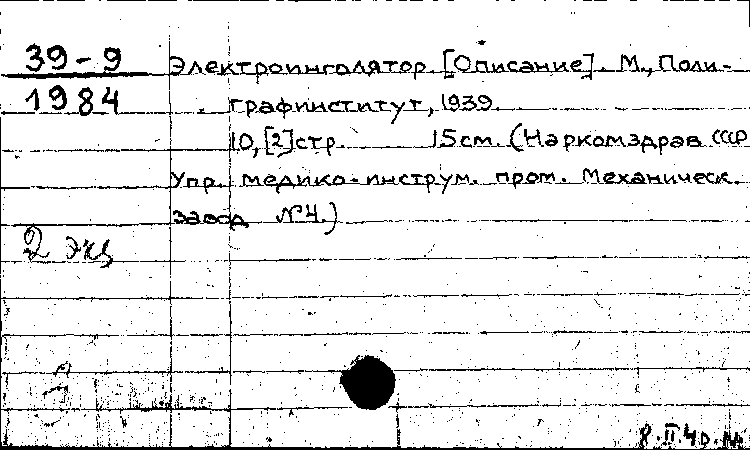 39-9
1984
Электроингалятор. [Описание]. М., Поли-
графинститут, 1939.
10, [2] стр. 15 см. (Наркомздрав СССР
Упр. медико-инструм. пром. Механическ.
завод №4.)
2 экз
8.II.40.